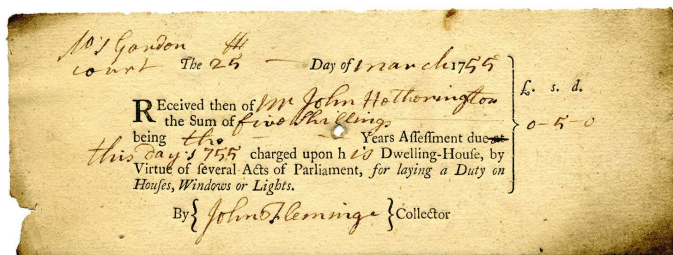 No 1 Gordon
Court The 25th — Day of march 1755
£. s. d.
REceived then of Mr John Hetherington
the Sum of five shillings 0-5-0
being the Years Assessment due at
this day 1755 charged upon his Dwelling-House, by
Virtue of several Acts of Parliament, for laying a Duty on
Houses, Windows or Lights.
By { John Fleming } Collector